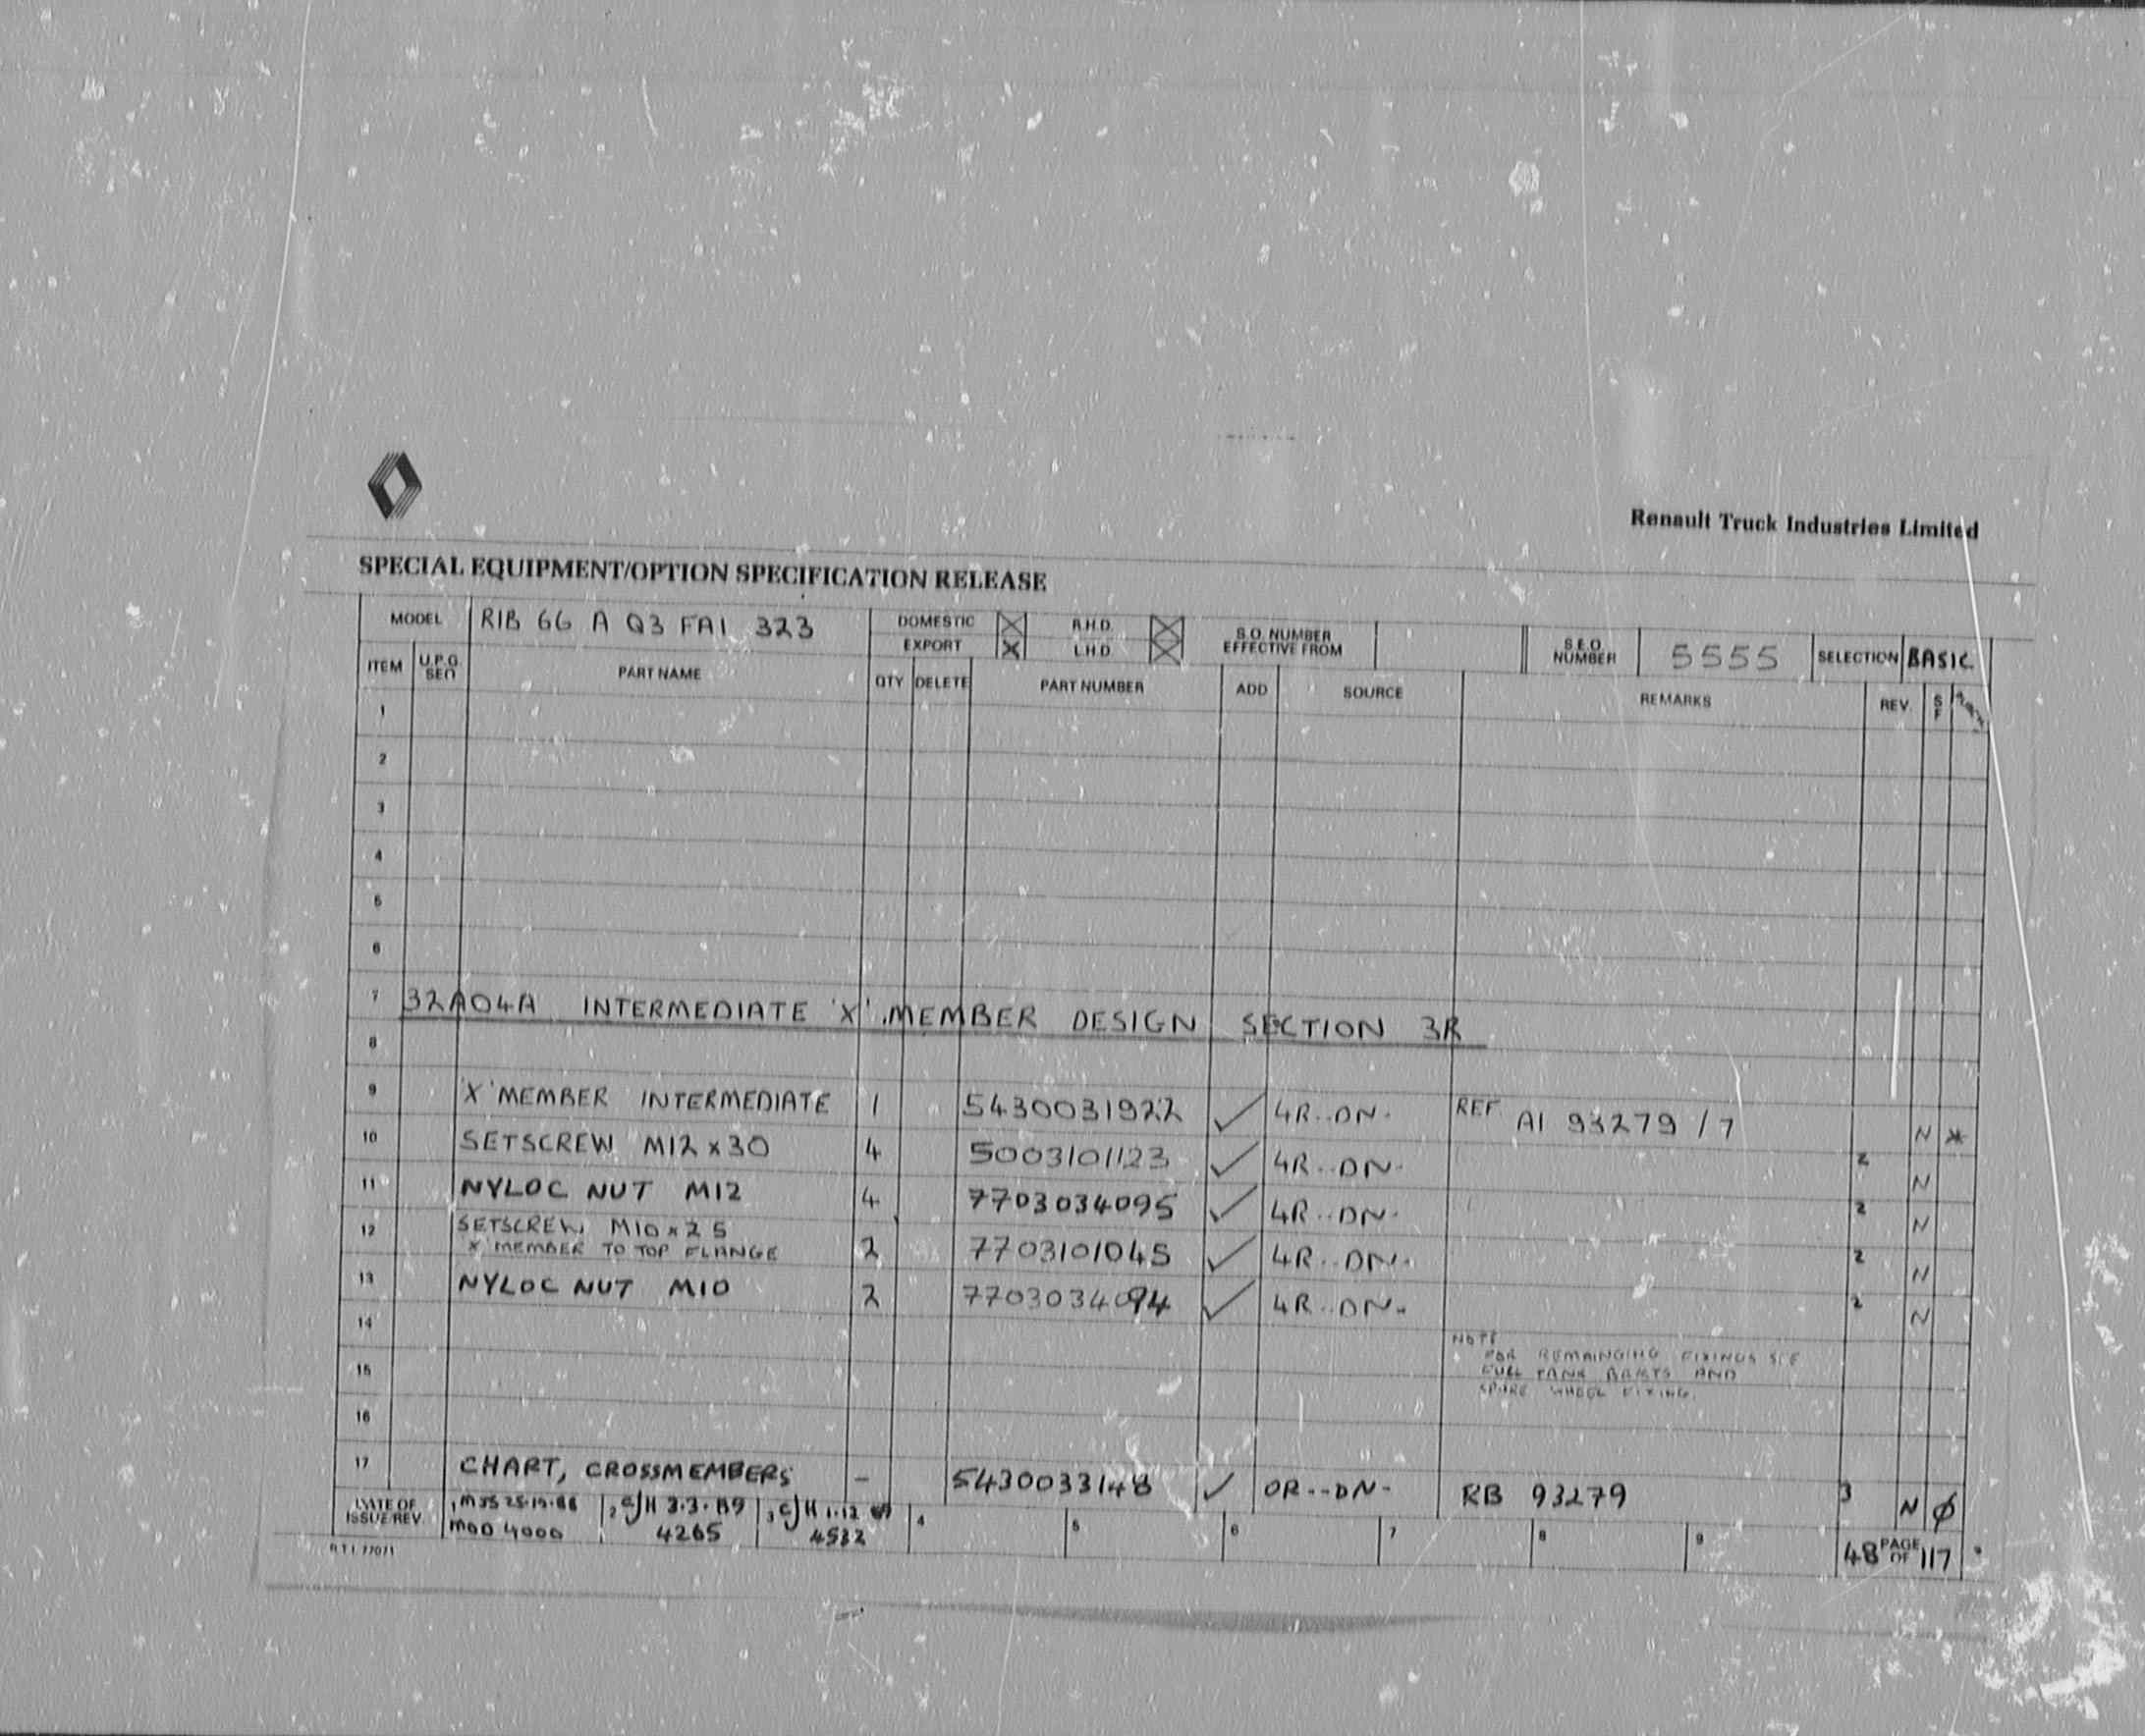 Renault Truck Industries Limited
SPECIAL EQUIPMENT/OPTION SPECIFICATION RELEASE
MODEL RIB 66 A Q3 FA1 323 DOMESTIC R.H.D. S.O. NUMBER EFFECTIVE FROM S.E.O. NUMBER 5555 SELECTION BASIC
EXPORT X L.H.D.
ITEM U.P.G. SEQ PART NAME QTY DELETE PART NUMBER ADD SOURCE REMARKS REV. S F
1
2
3
4
5
6
7 32A04A INTERMEDIATE 'X' MEMBER DESIGN SECTION 3R
8
9 'X' MEMBER INTERMEDIATE 1 5430031922 ✓ 4R..DN. REF A1 93279 / 7 N *
10 SETSCREW M12 x 30 4 5003101123 ✓ 4R..DN. 2 N
11 NYLOC NUT M12 4 7703034095 ✓ 4R..DN. 2 N
12 SETSCREW M10 x 25
'X' MEMBER TO TOP FLANGE 2 7703101045 ✓ 4R..DN. 2 N
13 NYLOC NUT M10 2 7703034094 ✓ 4R..DN. 2 N
14 NOTE
FOR REMAINGING FIXINGS SEE
15 FUEL TANK BRKTS AND
SPARE WHEEL FIXING.
16
17 CHART, CROSSMEMBERS - 5430033148 ✓ OR..DN. RB 93279 3 N Ø
DATE OF ISSUE/REV. 1 MJS 2 CJH 3.3.89 3 CJH 1.12.89 4 5 6 7 8 9 48 PAGE OF 117
MOD 4000 4265 4532
R.T.I. 77071